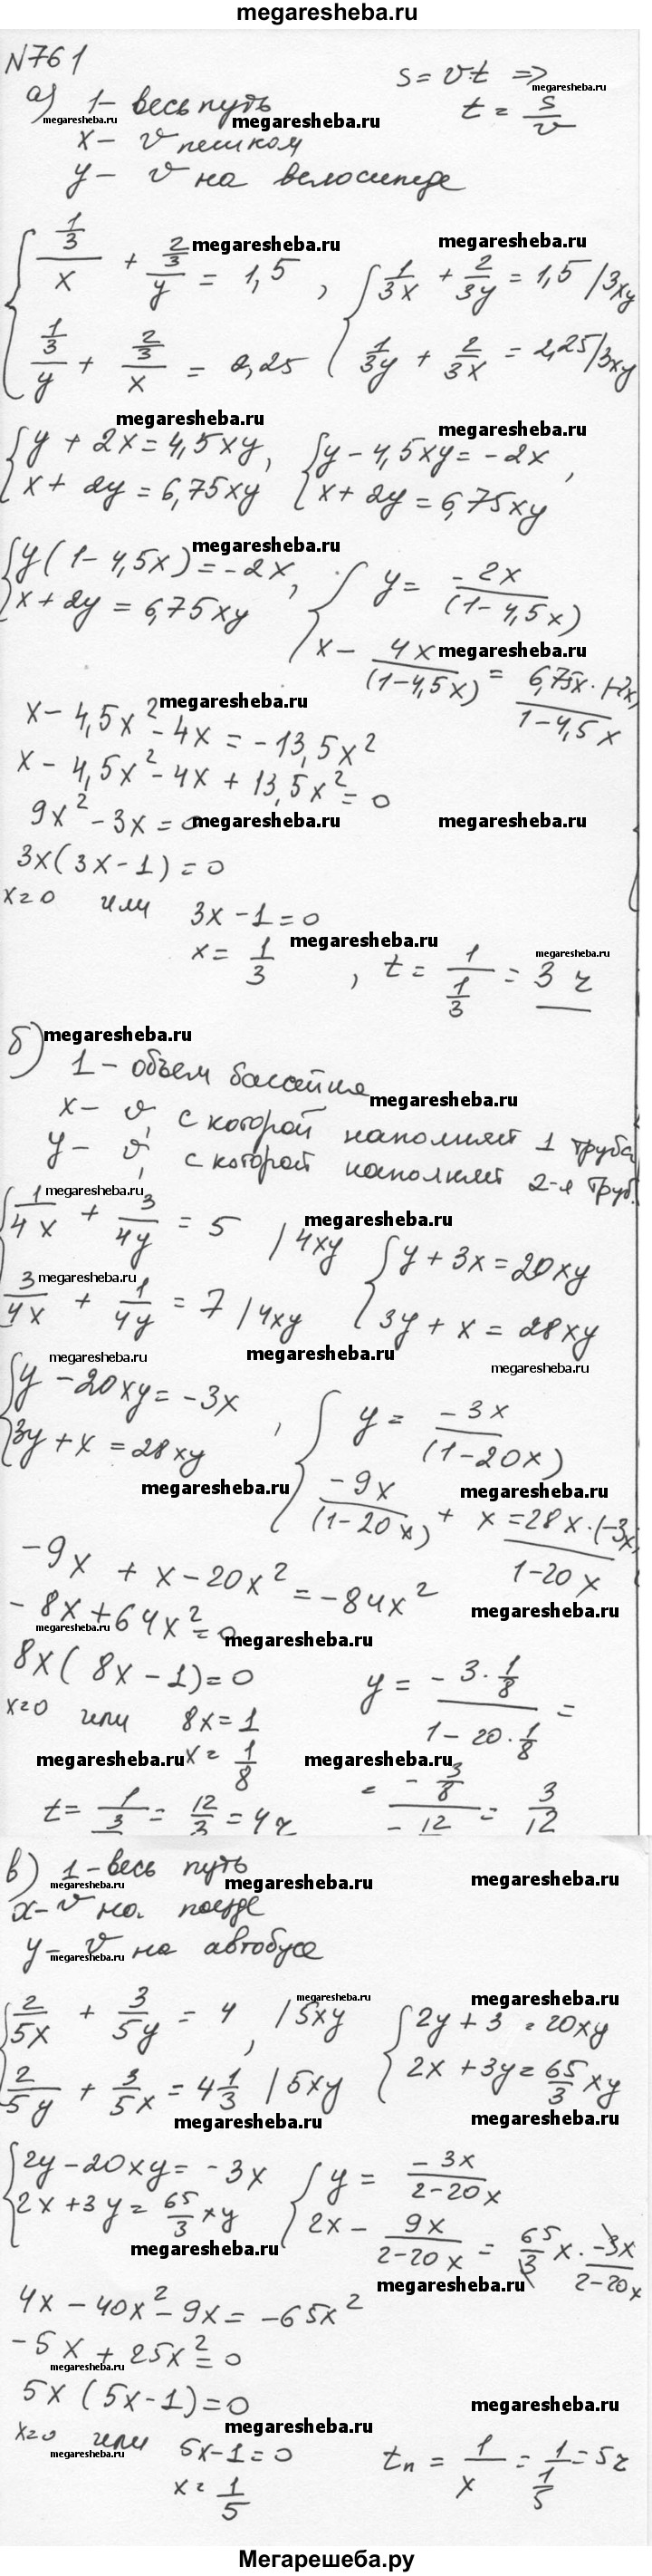 megaresheba.ru
N761
а) 1- весь путь
s = vt =>
t = s/v
x - v пешком
y - v на велосипеде
{ (1/3)/x + (2/3)/y = 1,5 , { 1/3x + 2/3y = 1,5 /3xy
(1/3)/y + (2/3)/x = 2,25 1/3y + 2/3x = 2,25/3xy
{ y + 2x = 4,5xy, { y - 4,5xy = -2x ,
x + 2y = 6,75xy x + 2y = 6,75xy
{ y(1-4,5x) = -2x, { y = -2x/(1-4,5x)
x + 2y = 6,75xy x - 4x/(1-4,5x) = 6,75x·(-2x)/1-4,5x
x - 4,5x² - 4x = -13,5x²
x - 4,5x² - 4x + 13,5x² = 0
9x² - 3x = 0
3x(3x-1) = 0
x=0 или 3x-1=0
x = 1/3 , t = 1/(1/3) = 3 ч
б) 1 - объем бассейна
x - v, с которой наполняет 1 труба
y - v, с которой наполняет 2-я труб.
{ 1/4x + 3/4y = 5 /4xy { y + 3x = 20xy
3/4x + 1/4y = 7 /4xy 3y + x = 28xy
{ y - 20xy = -3x , { y = -3x/(1-20x)
3y + x = 28xy -9x/(1-20x) + x = 28x·(-3x)/1-20x
-9x + x - 20x² = -84x²
-8x + 64x² = 0
8x(8x-1) = 0
x=0 или 8x=1
x = 1/8
y = -3·1/8 / 1-20·1/8 =
= -3/8 / -12 = 3/12
t = 1/3 = 12/3 = 4ч
в) 1 - весь путь
x - v на поезде
y - v на автобусе
{ 2/5x + 3/5y = 4 , /5xy { 2y + 3 = 20xy
2/5y + 3/5x = 4 1/3 /5xy 2x + 3y = 65/3 xy
{ 2y - 20xy = -3x { y = -3x/2-20x
2x + 3y = 65/3 xy 2x - 9x/2-20x = 65/3 x · -3x/2-20x
4x - 40x² - 9x = -65x²
-5x + 25x² = 0
5x(5x-1) = 0
x=0 или 5x-1=0
x = 1/5
tп = 1/x = 1/(1/5) = 5ч
Мегарешеба.ру